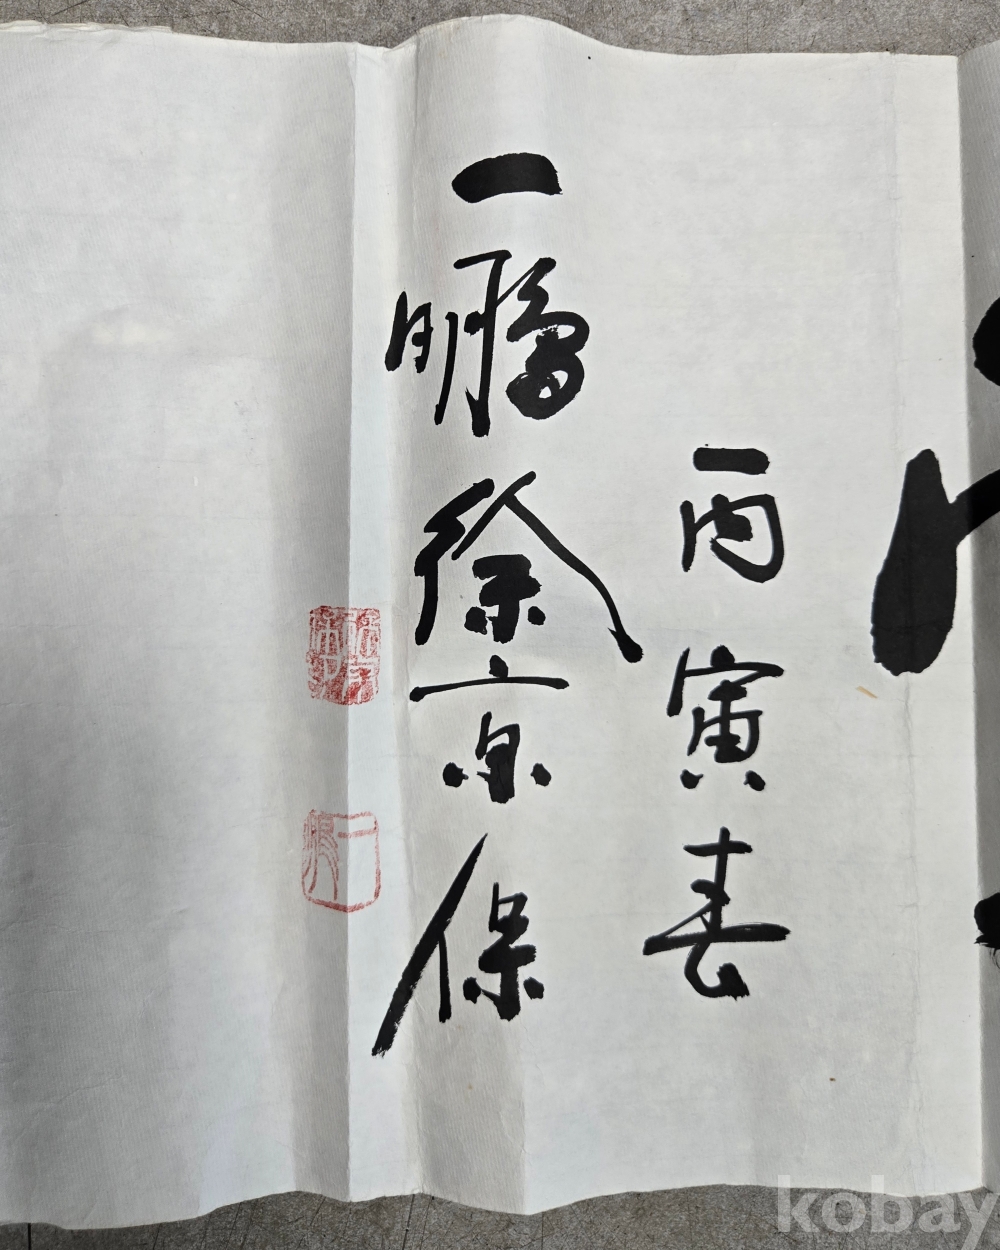 丙寅春
一鵬徐京保
一鵬
kobay